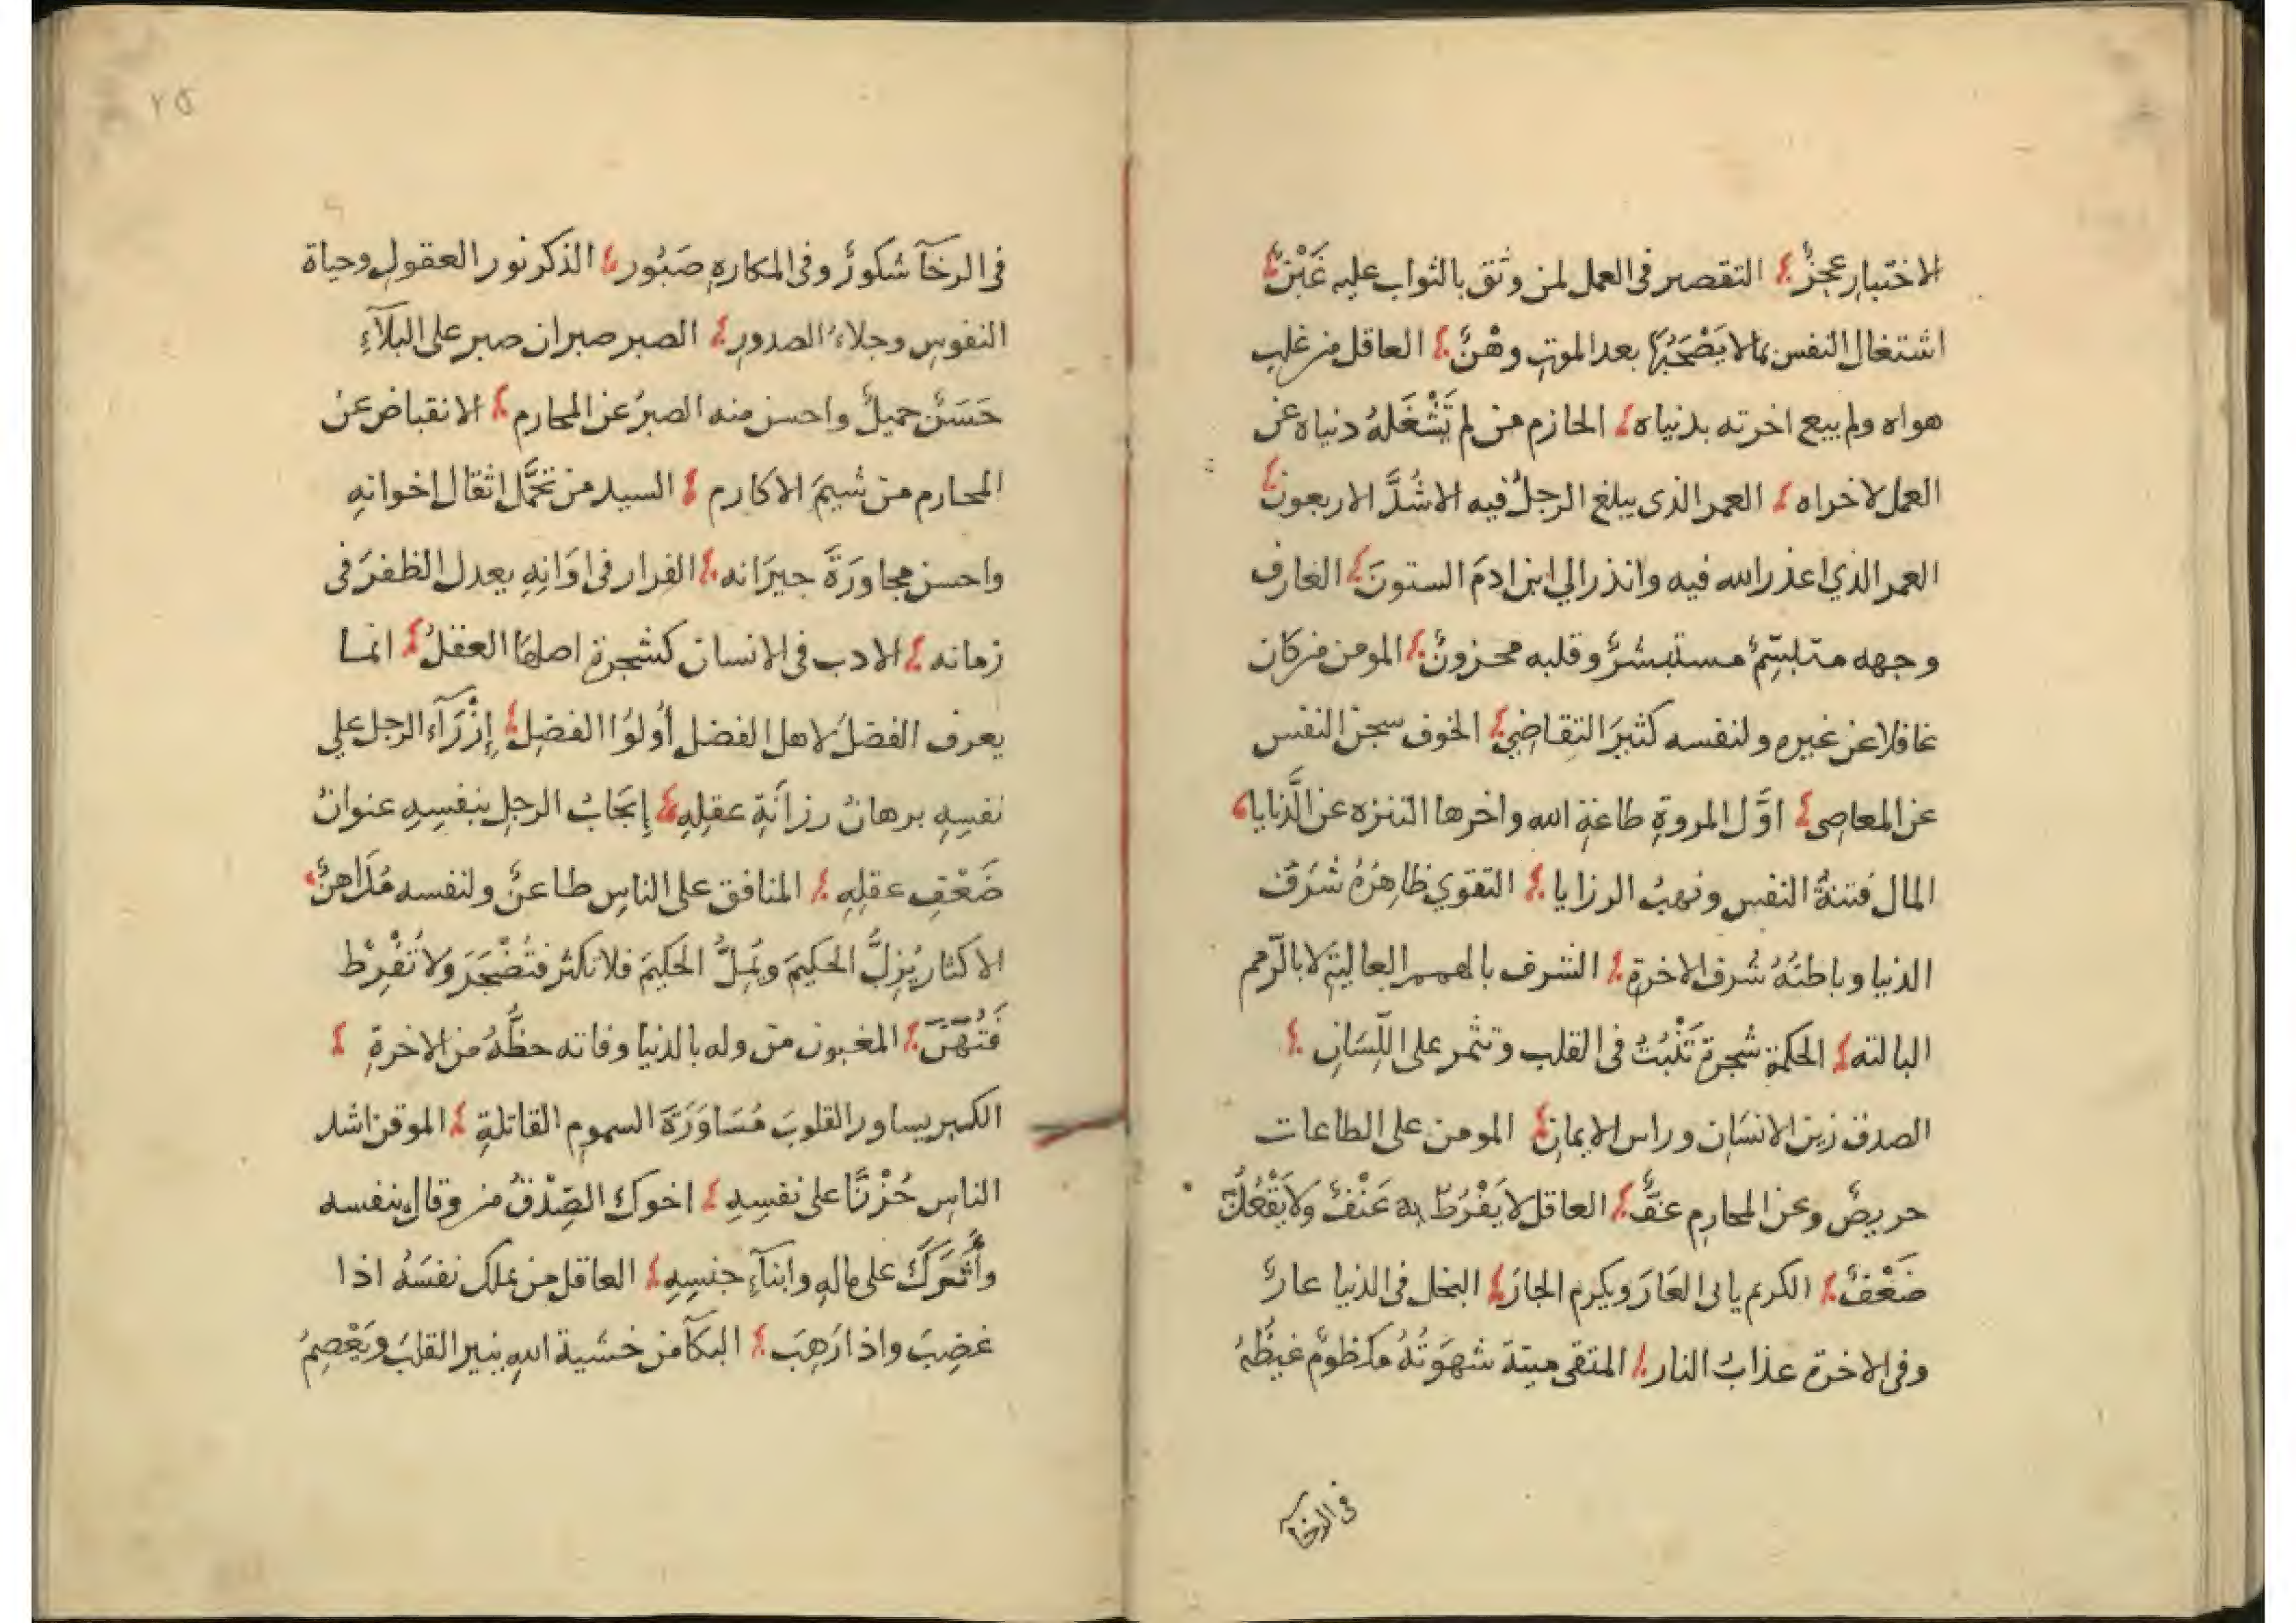 الاختبار عجزٌ التقصير فى العمل لمن وثق بالثواب عليه غَبْنٌ
اشتغال النفس بما لا يَصْحَبُها بعد الموتِ وهْنٌ العاقل من غلب
هواه ولم يبع اخرته بدنياه الحازم من لم تَشْغَلهُ دنياه عن
العمل لاخراه العمر الذى يبلغ الرجلُ فيه الاشُدَّ الاربعون
العمر الذي اعذر الله فيه وانذر الي ابن ادمَ الستونَ العارف
وجهه متبسّمٌ مستبشرٌ وقلبه محزونٌ المومن من كان
غافلا عن غيره ولنفسه كثيرَ التقاضِي الخوف سجن النفس
عن المعاصِى اوَّل المروةِ طاعةِ الله واخرها التنزه عن الدَّنايا
المال فتنةُ النفس ونهبُ الرزايا التقوي ظاهِرُهُ شرَفُ
الدنيا وباطنُهُ شرف الاخرةِ الشرف بالهمم العاليةِ لا بالرّمم
البالته الحكمة شجرة تَنْبُتُ فى القلب وتثمر على اللِّسَانِ
الصدق زين الانسَان وراس الايمانِ المومن على الطاعات
حريصٌ وعن المحارِمِ عَفٌّ العاقل لا يَفْرُطُ به عَنْفٌ ولا يَقْعُدُ به
ضَعْفٌ الكريم يابى العَارَ ويكرم الجارَ البخل فى الدنيا عارٌ
وفى الاخرة عذابُ النار المتقى ميتة شهوَتُهُ مكظومٌ غيظُهُ
فى الرخآ
٢٥
فى الرخآ شكورٌ وفى المكارِهِ صَبُور الذكر نور العقولِ وحياة
النفوسِ وجلاءُ الصدورِ الصبر صبران صبر على البلآءِ
حَسَنٌ جميلٌ واحسن منه الصبرُ عن المحارم الانقباض عن
المحارم من شيمَ الاكارم السيد من تحمَّل اثقال اخوانهِ
واحسن مجاورَةَ جيرَانه الفرار فى اوَانِهِ يعدل الظفرَ فى
زمانه الادب فى الانسان كشجرة اصلها العقلُ انما
يعرف الفضلَ لاهل الفضل أولوُا الفضِل إزْرَآء الرجل علي
نفسِهِ برهانُ رزانَةِ عقلِهِ إعجَابُ الرجلِ بنفسِهِ عنوانُ
ضَعْفِ عقلِهِ المنافق على الناسِ طاعنٌ ولنفسه مُدَاهنٌ
الاكثار يُزِلُّ الحكيمَ ويُمِلُّ الحكيمَ فلا تكثر فتُضْجَرَ ولا تُفْرِطْ
فَتُهَنَ المغبون من وله بالدنيا وفاته حظُّهُ من الاخرةِ
الكبر يساور القلوبَ مُسَاوَرَةَ السموم القاتلةِ الموقن اشد
الناسِ حُزْنًا على نفسِهِ اخوك الصِّدْقُ من وقاك بنفسه
وأثَرَكَ على مالِهِ وابنآءِ جنسِهِ العاقل من يملك نفسَهُ اذا
غضِبَ واذا رَهِبَ البكآ من خشية اللهِ ينير القلبَ ويَعْصِمُ